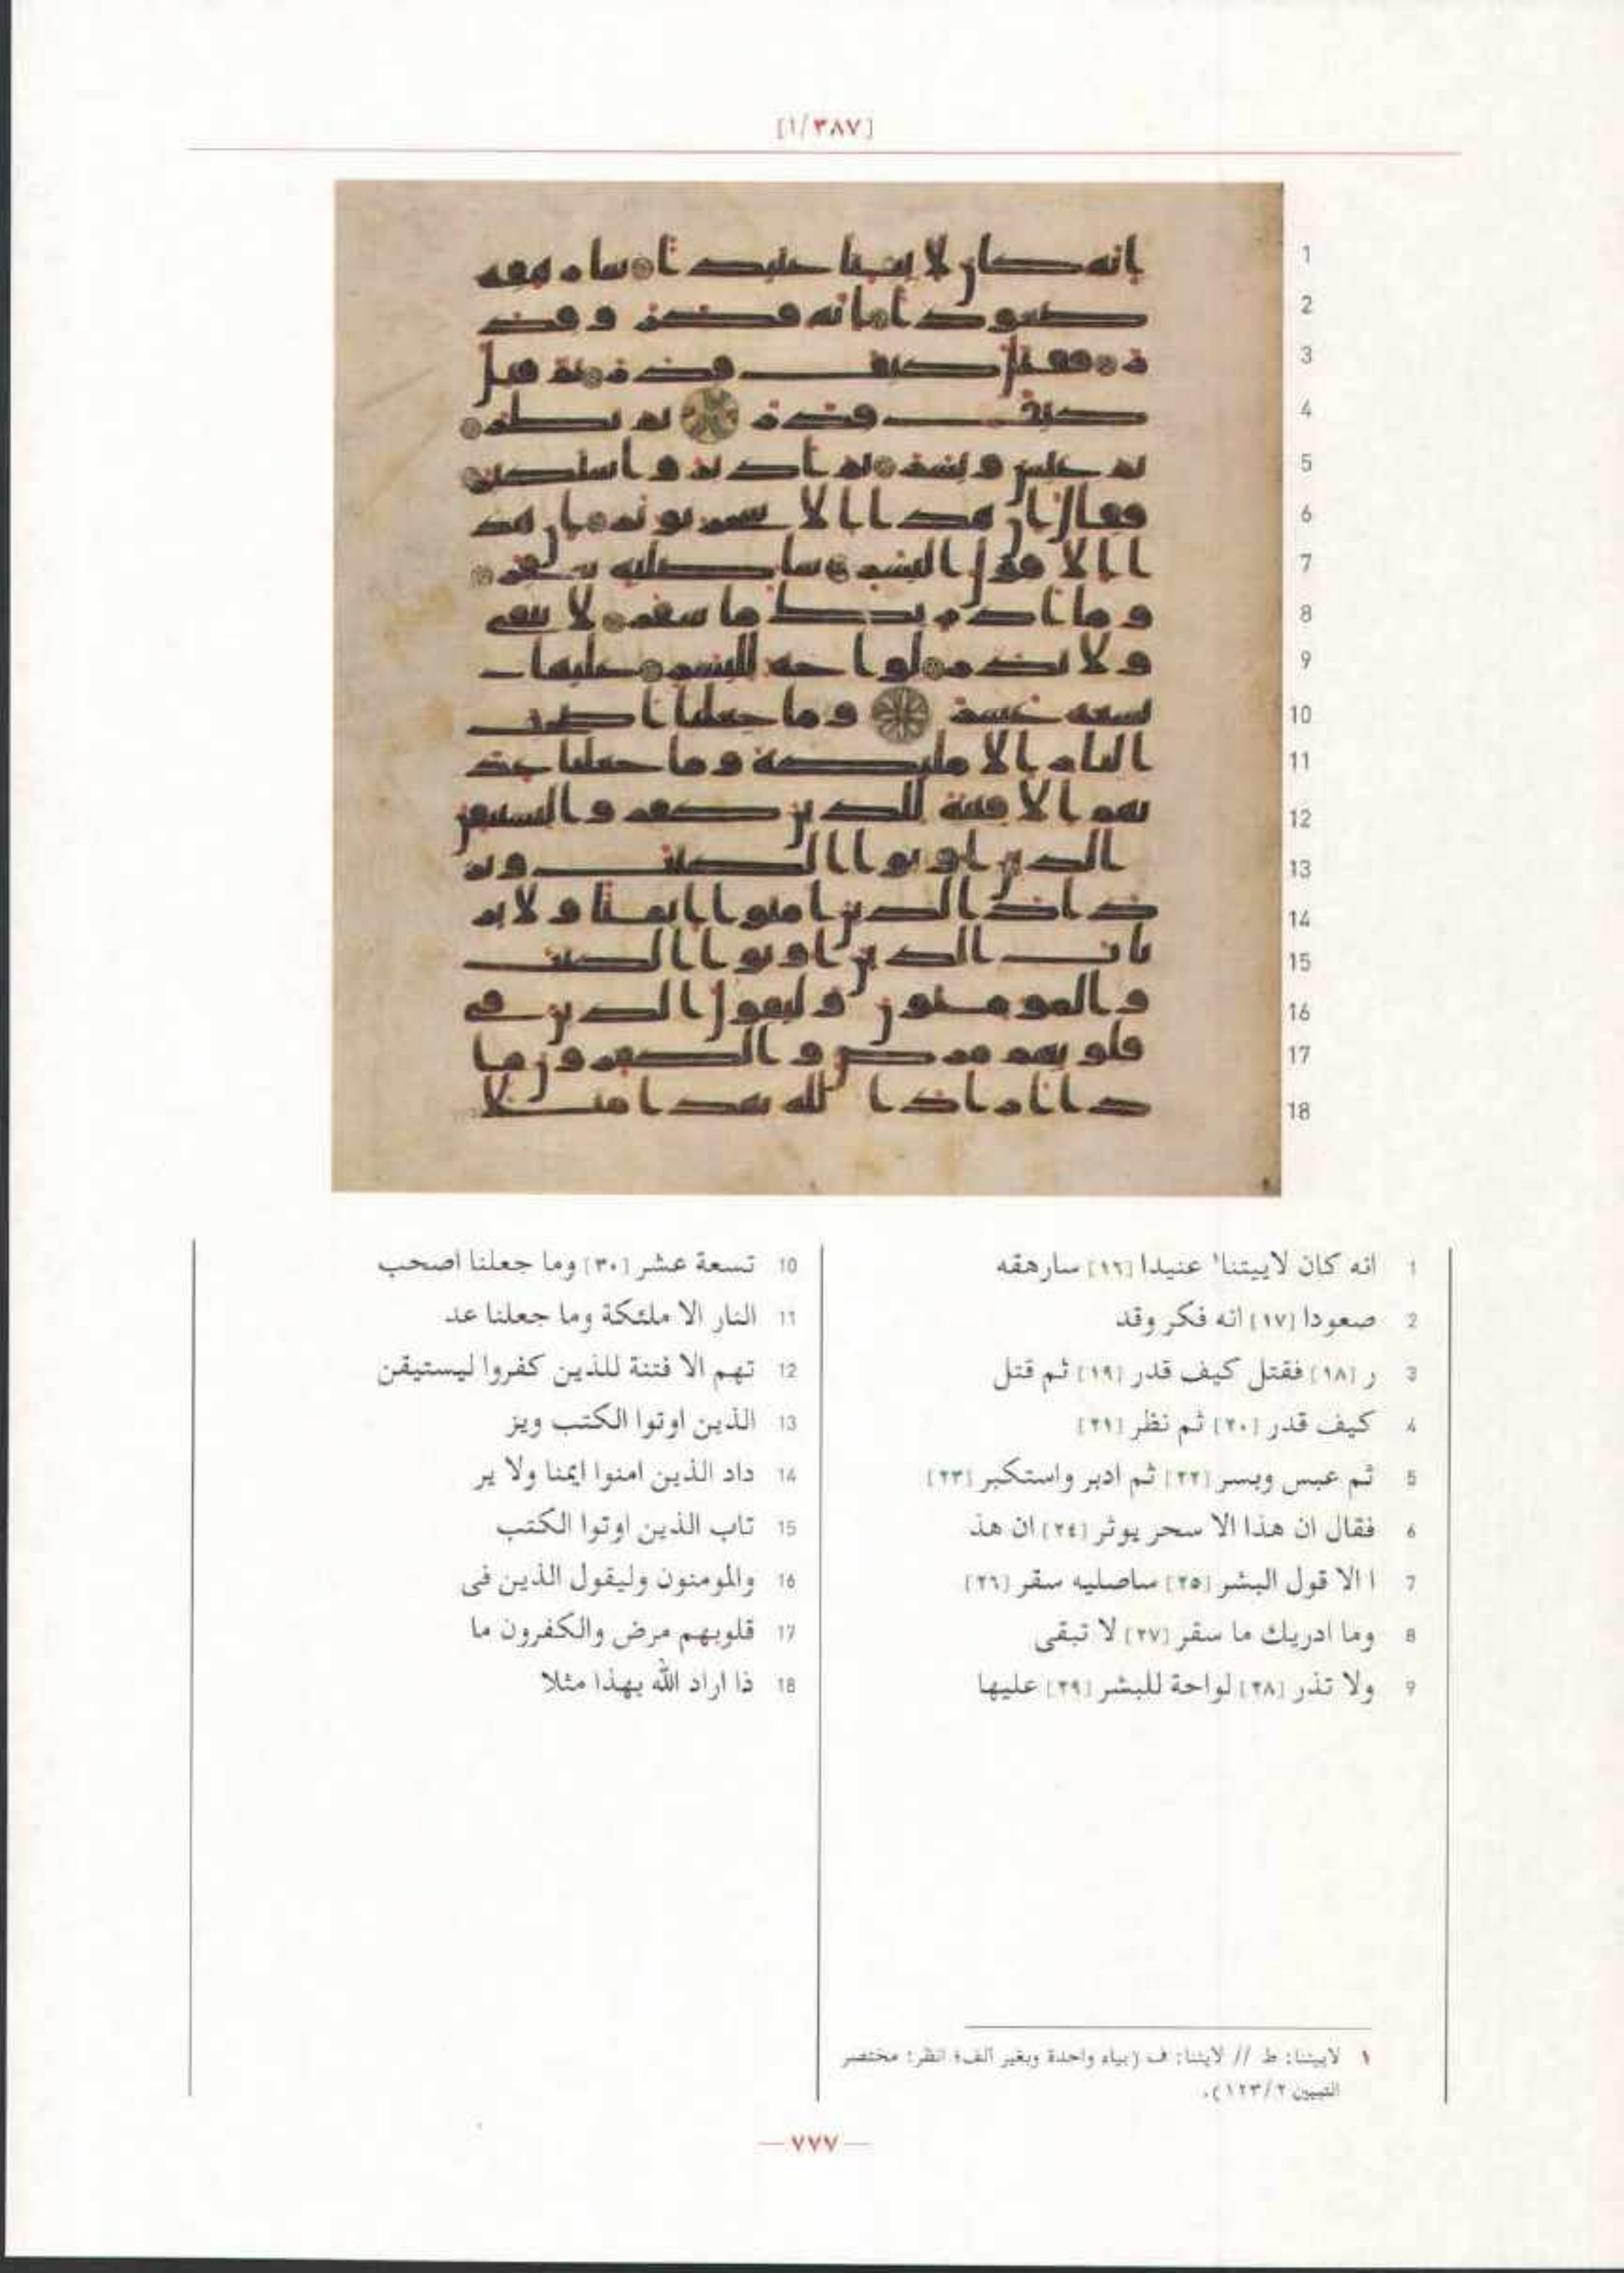 [٣٨٧/١]
1 انه كان لاييتنا١ عنيدا [١٦] سارهقه
2 صعودا [١٧] انه فكر وقد
3 ر [١٨] فقتل كيف قدر [١٩] ثم قتل
4 كيف قدر [٢٠] ثم نظر [٢١]
5 ثم عبس وبسر [٢٢] ثم ادبر واستكبر [٢٣]
6 فقال ان هذا الا سحر يوثر [٢٤] ان هذ
7 ا الا قول البشر [٢٥] ساصليه سقر [٢٦]
8 وما ادريك ما سقر [٢٧] لا تبقى
9 ولا تذر [٢٨] لواحة للبشر [٢٩] عليها
10 تسعة عشر [٣٠] وما جعلنا اصحب
11 النار الا ملئكة وما جعلنا عد
12 تهم الا فتنة للذين كفروا ليستيقن
13 الذين اوتوا الكتب ويز
14 داد الذين امنوا ايمنا ولا ير
15 تاب الذين اوتوا الكتب
16 والمومنون وليقول الذين فى
17 قلوبهم مرض والكفرون ما
18 ذا اراد الله بهذا مثلا
١ لاييتنا: ط // لايتنا: ف (بياء واحدة وبغير ألف؛ انظر: مختصر
التبيين ١٢٣/٢).
— ٧٧٧ —